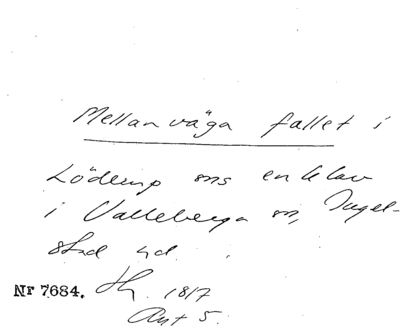 Mellanväga fallet i
Löderup sns enklav
i Valleberga sn, Ingel-
stad hd.
Nr 7684. Sk. 1817
Akt 5.